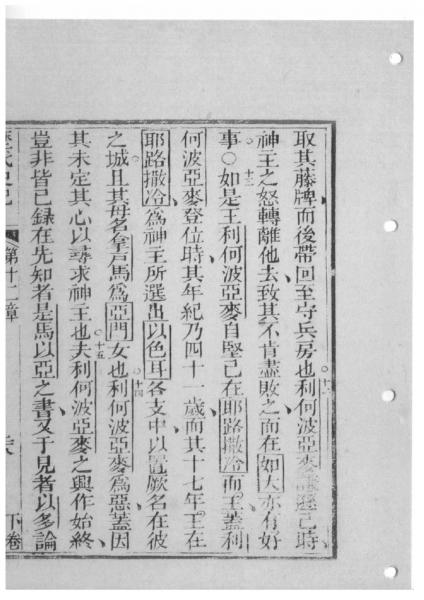 取其藤牌而後帶回至守兵房也利何波亞麥謙遜己時
神主之怒轉離他去致其不肯盡敗之而在如大亦有好
事○如是王利何波亞麥自堅己在耶路撒冷而王蓋利
何波亞麥登位時其年紀乃四十一歲而其十七年王在
耶路撒冷為神主所選出以色耳各支中以置厥名在彼
之城且其母名拿戸馬為亞門女也利何波亞麥為惡蓋因
其未定其心以尋求神主也夫利何波亞麥之興作始終
豈非皆已錄在先知者是馬以亞之書又于見者以多論
第十二章 下卷